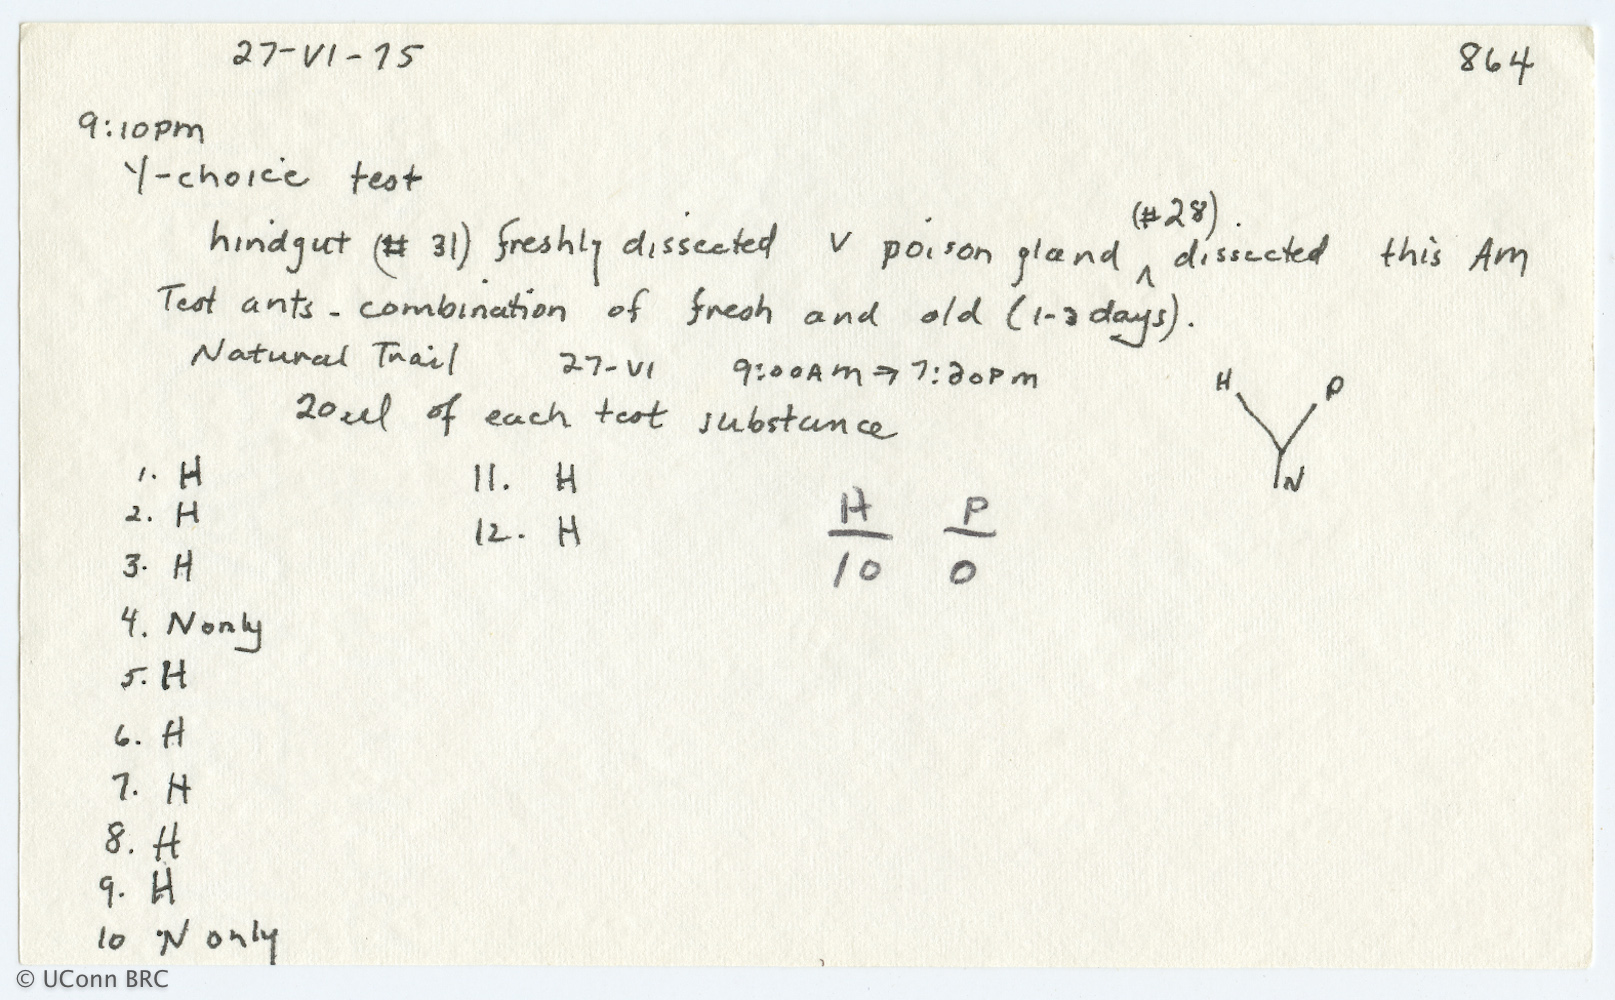 27-VI-75 864
9:10pm
Y-choice test
hindgut (# 31) freshly dissected v poison gland ^ (#28). dissected this Am
Test ants - combination of fresh and old (1-3 days).
Natural Trail 27-VI 9:00Am → 7:30pm
20ul of each test substance
H P
N
1. H 11. H
2. H 12. H
3. H
4. N only
5. H
6. H
7. H
8. H
9. H
10 N only
H P
10 0
© UConn BRC